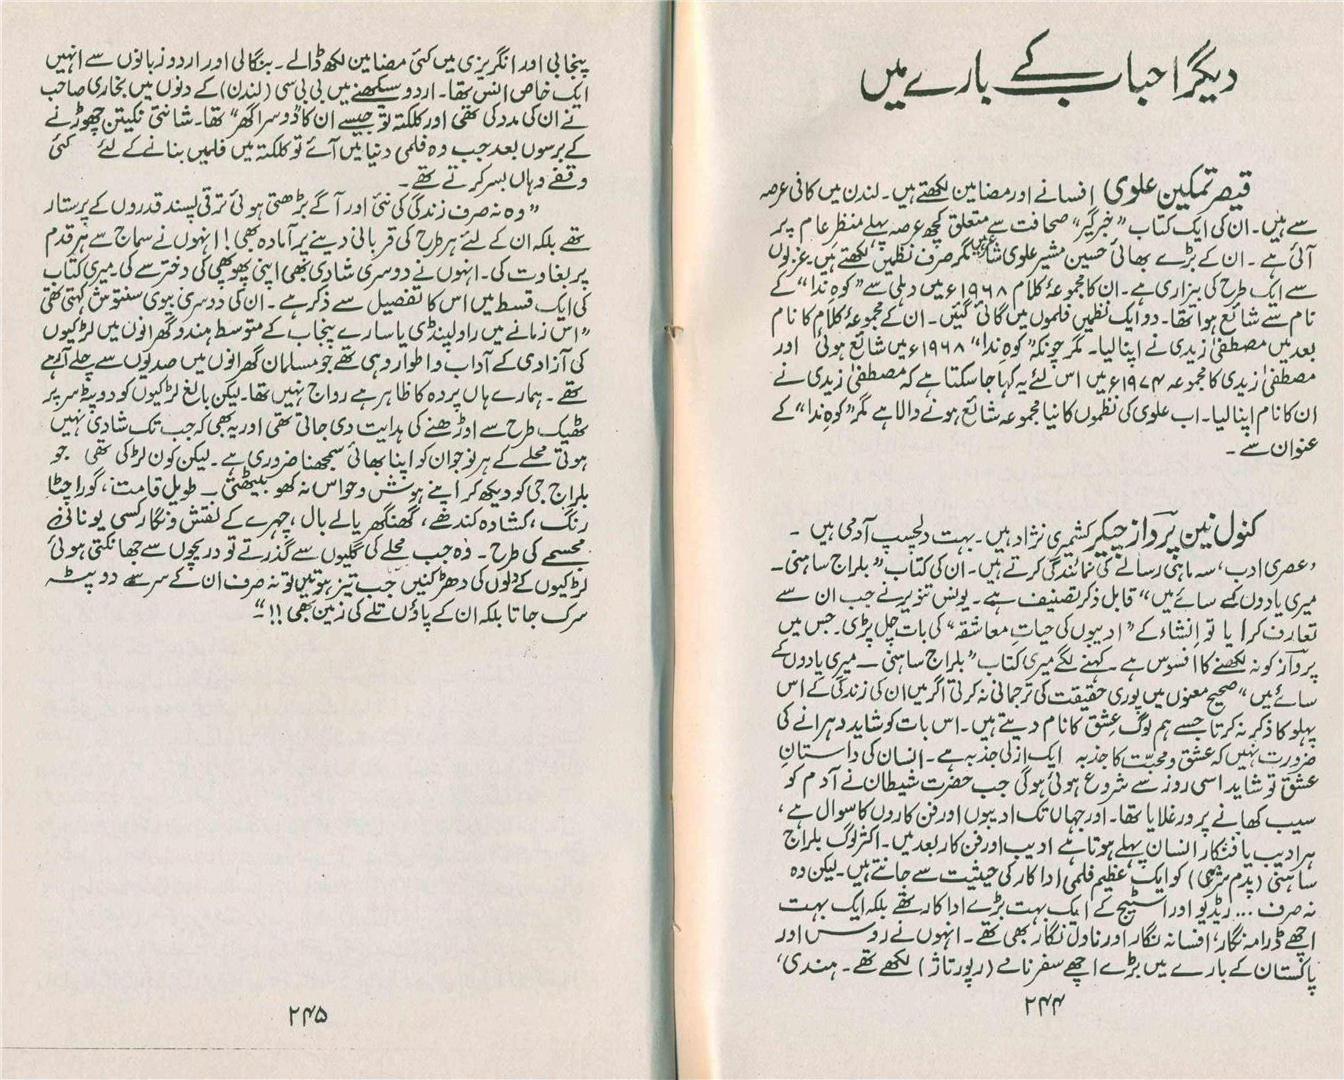 دیگر احباب کے بارے میں
قیصر تمکین علوی افسانے اور مضامین لکھتے ہیں۔ لندن میں کافی عرصہ
سے ہیں۔ ان کی ایک کتاب ”خبرگیر“ صحافت سے متعلق کچھ عرصہ پہلے منظر عام پر
آئی ہے۔ ان کے بڑے بھائی حسین مشیر علوی شاعر ہیں مگر صرف نظمیں لکھتے ہیں۔ غزلوں
سے ایک طرح کی بیزاری ہے۔ ان کا مجموعۂ کلام ۱۹۶۸ء میں دہلی سے ”کوہ ندا“ کے
نام سے شائع ہوا تھا۔ دو ایک نظمیں فلموں میں گائی گئیں۔ ان کے مجموعۂ کلام کا نام
بعد میں مصطفیٰ زیدی نے اپنا لیا۔ مگر چونکہ ”کوہ ندا“ ۱۹۶۸ء میں شائع ہوئی اور
مصطفیٰ زیدی کا مجموعہ ۱۹۷۴ء میں اس لئے یہ کہا جا سکتا ہے کہ مصطفیٰ زیدی نے
ان کا نام اپنا لیا۔ اب علوی کی نظموں کا نیا مجموعہ شائع ہونے والا ہے مگر ”کوہ ندا“ کے
عنوان سے۔
کنول نین پرواز چیکر کشمیری نژاد ہیں۔ بہت دلچسپ آدمی ہیں۔
’عصری ادب‘، سہ ماہی رسالے کی نمائندگی کرتے ہیں۔ ان کی کتاب ”بلراج ساہنی۔
میری یادوں کے سائے میں“ قابل ذکر تصنیف ہے۔ یونس تنویر نے جب ان سے
تعارف کرا یا تو اِنشاء کے ”ادیبوں کی حیاتِ معاشقہ“ کی بات چل پڑی۔ جس میں
پرواز کو نہ لکھنے کا افسوس ہے۔ کہنے لگے میری کتاب ”بلراج ساہنی۔ میری یادوں کے
سائے میں“ صحیح معنوں میں پوری حقیقت کی ترجمانی نہ کرتی اگر میں ان کی زندگی کے اس
پہلو کا ذکر نہ کرتا جسے ہم لوگ عشق کا نام دیتے ہیں۔ اس بات کو شاید دہرانے کی
ضرورت نہیں کہ عشق و محبّت کا جذبہ ایک ازلی جذبہ ہے۔ انسان کی داستانِ
عشق تو شاید اسی روز سے شروع ہوئی ہوگی جب حضرت شیطان نے آدم کو
سیب کھانے پر ورغلایا تھا۔ اور جہاں تک ادیبوں اور فن کاروں کا سوال ہے،
ہر ادیب یا فنکار انسان پہلے ہوتا ہے ادیب اور فن کار بعد میں۔ اکثر لوگ بلراج
ساہنی (پدم شری) کو ایک عظیم فلمی اداکار کی حیثیت سے جانتے ہیں۔ لیکن وہ
نہ صرف ... ریڈیو اور اسٹیج کے ایک بہت بڑے اداکار تھے بلکہ ایک بہت
اچھے ڈرامہ نگار، افسانہ نگار اور ناول نگار بھی تھے۔ انہوں نے روس اور
پاکستان کے بارے میں بڑے اچھے سفرنامے (رپورتاژ) لکھے تھے۔ ہندی،
۲۴۴
پنجابی اور انگریزی میں کئی مضامین لکھ ڈالے۔ بنگالی اور اردو زبانوں سے انہیں
ایک خاص انس تھا۔ اردو سیکھنے میں بی بی سی (لندن) کے دنوں میں بخاری صاحب
نے ان کی مدد کی تھی اور کلکتہ تو جیسے ان کا ”دوسرا گھر“ تھا۔ شانتی نکیتن چھوڑنے
کے برسوں بعد جب وہ فلمی دنیا میں آئے تو کلکتہ میں فلمیں بنانے کے لئے کئی
وقفے وہاں بسر کرتے تھے۔
”وہ نہ صرف زندگی کی نئی اور آگے بڑھتی ہوئی ترقی پسند قدروں کے پرستار
تھے بلکہ ان کے لئے ہر طرح کی قربانی دینے پر آمادہ بھی! انہوں نے سماج سے ہر قدم
پر بغاوت کی۔ انہوں نے دوسری شادی بھی اپنی پھوپھی کی دختر سے کی۔ میری کتاب
کی ایک قسط میں اس کا تفصیل سے ذکر ہے۔ ان کی دوسری بیوی سنتوش کہتی تھی
”اس زمانے میں راولپنڈی یا سارے پنجاب کے متوسط ہندو گھرانوں میں لڑکیوں
کی آزادی کے آداب و اطوار وہی تھے جو مسلمان گھرانوں میں صدیوں سے چلے آئے
تھے۔ ہمارے ہاں پردہ کا ظاہر ہے رواج نہیں تھا۔ لیکن بالغ لڑکیوں کو دوپٹہ سر پر
ٹھیک طرح سے اوڑھنے کی ہدایت دی جاتی تھی اور یہ بھی کہ جب تک شادی نہیں
ہوتی محلے کے ہر نوجوان کو اپنا بھائی سمجھنا ضروری ہے۔ لیکن کون لڑکی تھی جو
بلراج جی کو دیکھ کر اپنے ہوش و حواس نہ کھو بیٹھتی۔ طویل قامت، گورا چٹا
رنگ، کشادہ کندھے، گھنگھریالے بال، چہرے کے نقش و نگار کسی یونانی
مجسمے کی طرح۔ وہ جب محلے کی گلیوں سے گذرتے تو دریچوں سے جھانکتی ہوئی
لڑکیوں کے دلوں کی دھڑکنیں جب تیز ہوتیں تو نہ صرف ان کے سر سے دوپٹہ
سرک جاتا بلکہ ان کے پاؤں تلے کی زمین بھی!!“۔
۲۴۵